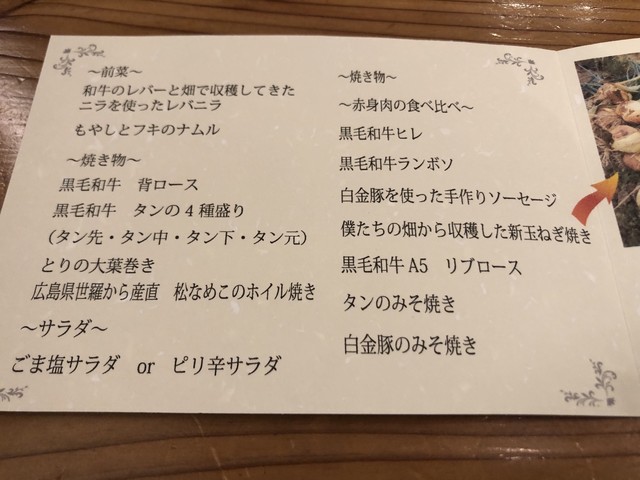 ～前菜～
和牛のレバーと畑で収穫してきた
ニラを使ったレバニラ
もやしとフキのナムル
～焼き物～
黒毛和牛　背ロース
黒毛和牛　タンの4種盛り
（タン先・タン中・タン下・タン元）
とりの大葉巻き
広島県世羅から産直　松なめこのホイル焼き
～サラダ～
ごま塩サラダ　or　ピリ辛サラダ
～焼き物～
～赤身肉の食べ比べ～
黒毛和牛ヒレ
黒毛和牛ランボソ
白金豚を使った手作りソーセージ
僕たちの畑から収穫した新玉ねぎ焼き
黒毛和牛A5　リブロース
タンのみそ焼き
白金豚のみそ焼き